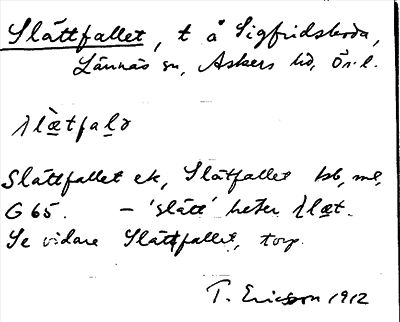 Slättfallet, t å Sigfridsboda,
Lännäs sn, Askers hd, Ör. l.
slæ̲tfalə
Slättfallet ek, Slätfallet hsb, ml,
G 65. – 'slätt' heter slæt.
Se vidare Slättfallet, torp.
T. Ericsson 1912